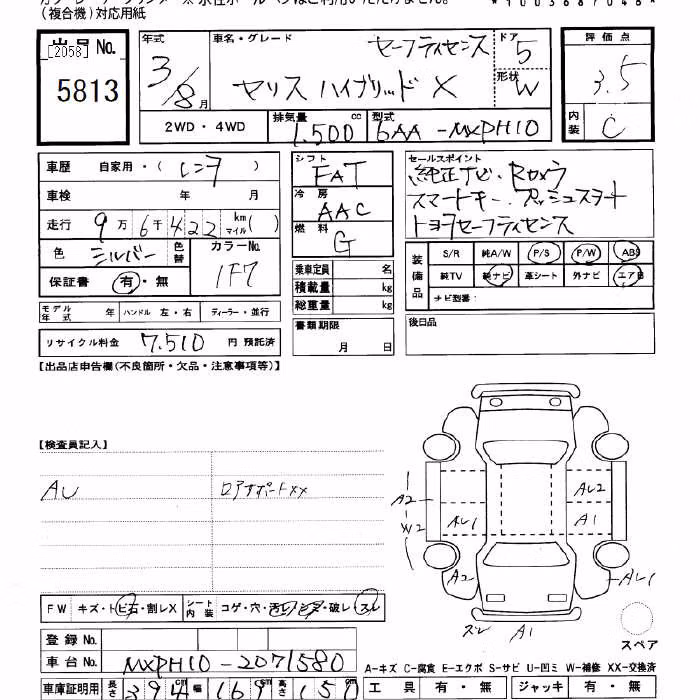 (複合機)対応用紙
出品 No. [2058]
5813
年式 3/8月
車名・グレード セーフティセンス
ヤリス ハイブリッド X
ドア 5
形状 W
評価点 3.5
内装 C
2WD・4WD
排気量 1,500 cc
型式 6AA-MXPH10
車歴 自家用・( レンタ )
車検 年 月
走行 9万 6千 4 2 2 km マイル( )
色 シルバー 色替 カラーNo. 1F7
保証書 有・無
シフト FAT
冷房 AAC
燃料 G
乗車定員 名
積載量 kg
総重量 kg
書類期限 月 日
セールスポイント
純正ナビ・Bカメラ
スマートキー・プッシュスタート
トヨタセーフティセンス
装備品 S/R 純A/W P/S P/W ABS
純TV 純ナビ 革シート 外ナビ エアB
ナビ型番:
モデル年式 年 ハンドル 左・右 ディーラー・並行
後日品
リサイクル料金 7,510 円 預託済
【出品店申告欄(不良箇所・欠品・注意事項等)】
【検査員記入】
AU ロアサポートXX
A2
W2
AU1
AU2
A1
A2
AU1
スレ A1
スペア
FW キズ・トビ石・割レX シート内装 コゲ・穴・汚レ・シミ・破レ・スレ
登録 No.
車台 No. MXPH10-2071580
A-キズ C-腐食 E-エクボ S-サビ U-凹ミ W-補修 XX-交換済
車庫証明用 長さ 394cm 幅 169cm 高さ 150
工具 有・無 ジャッキ 有・無